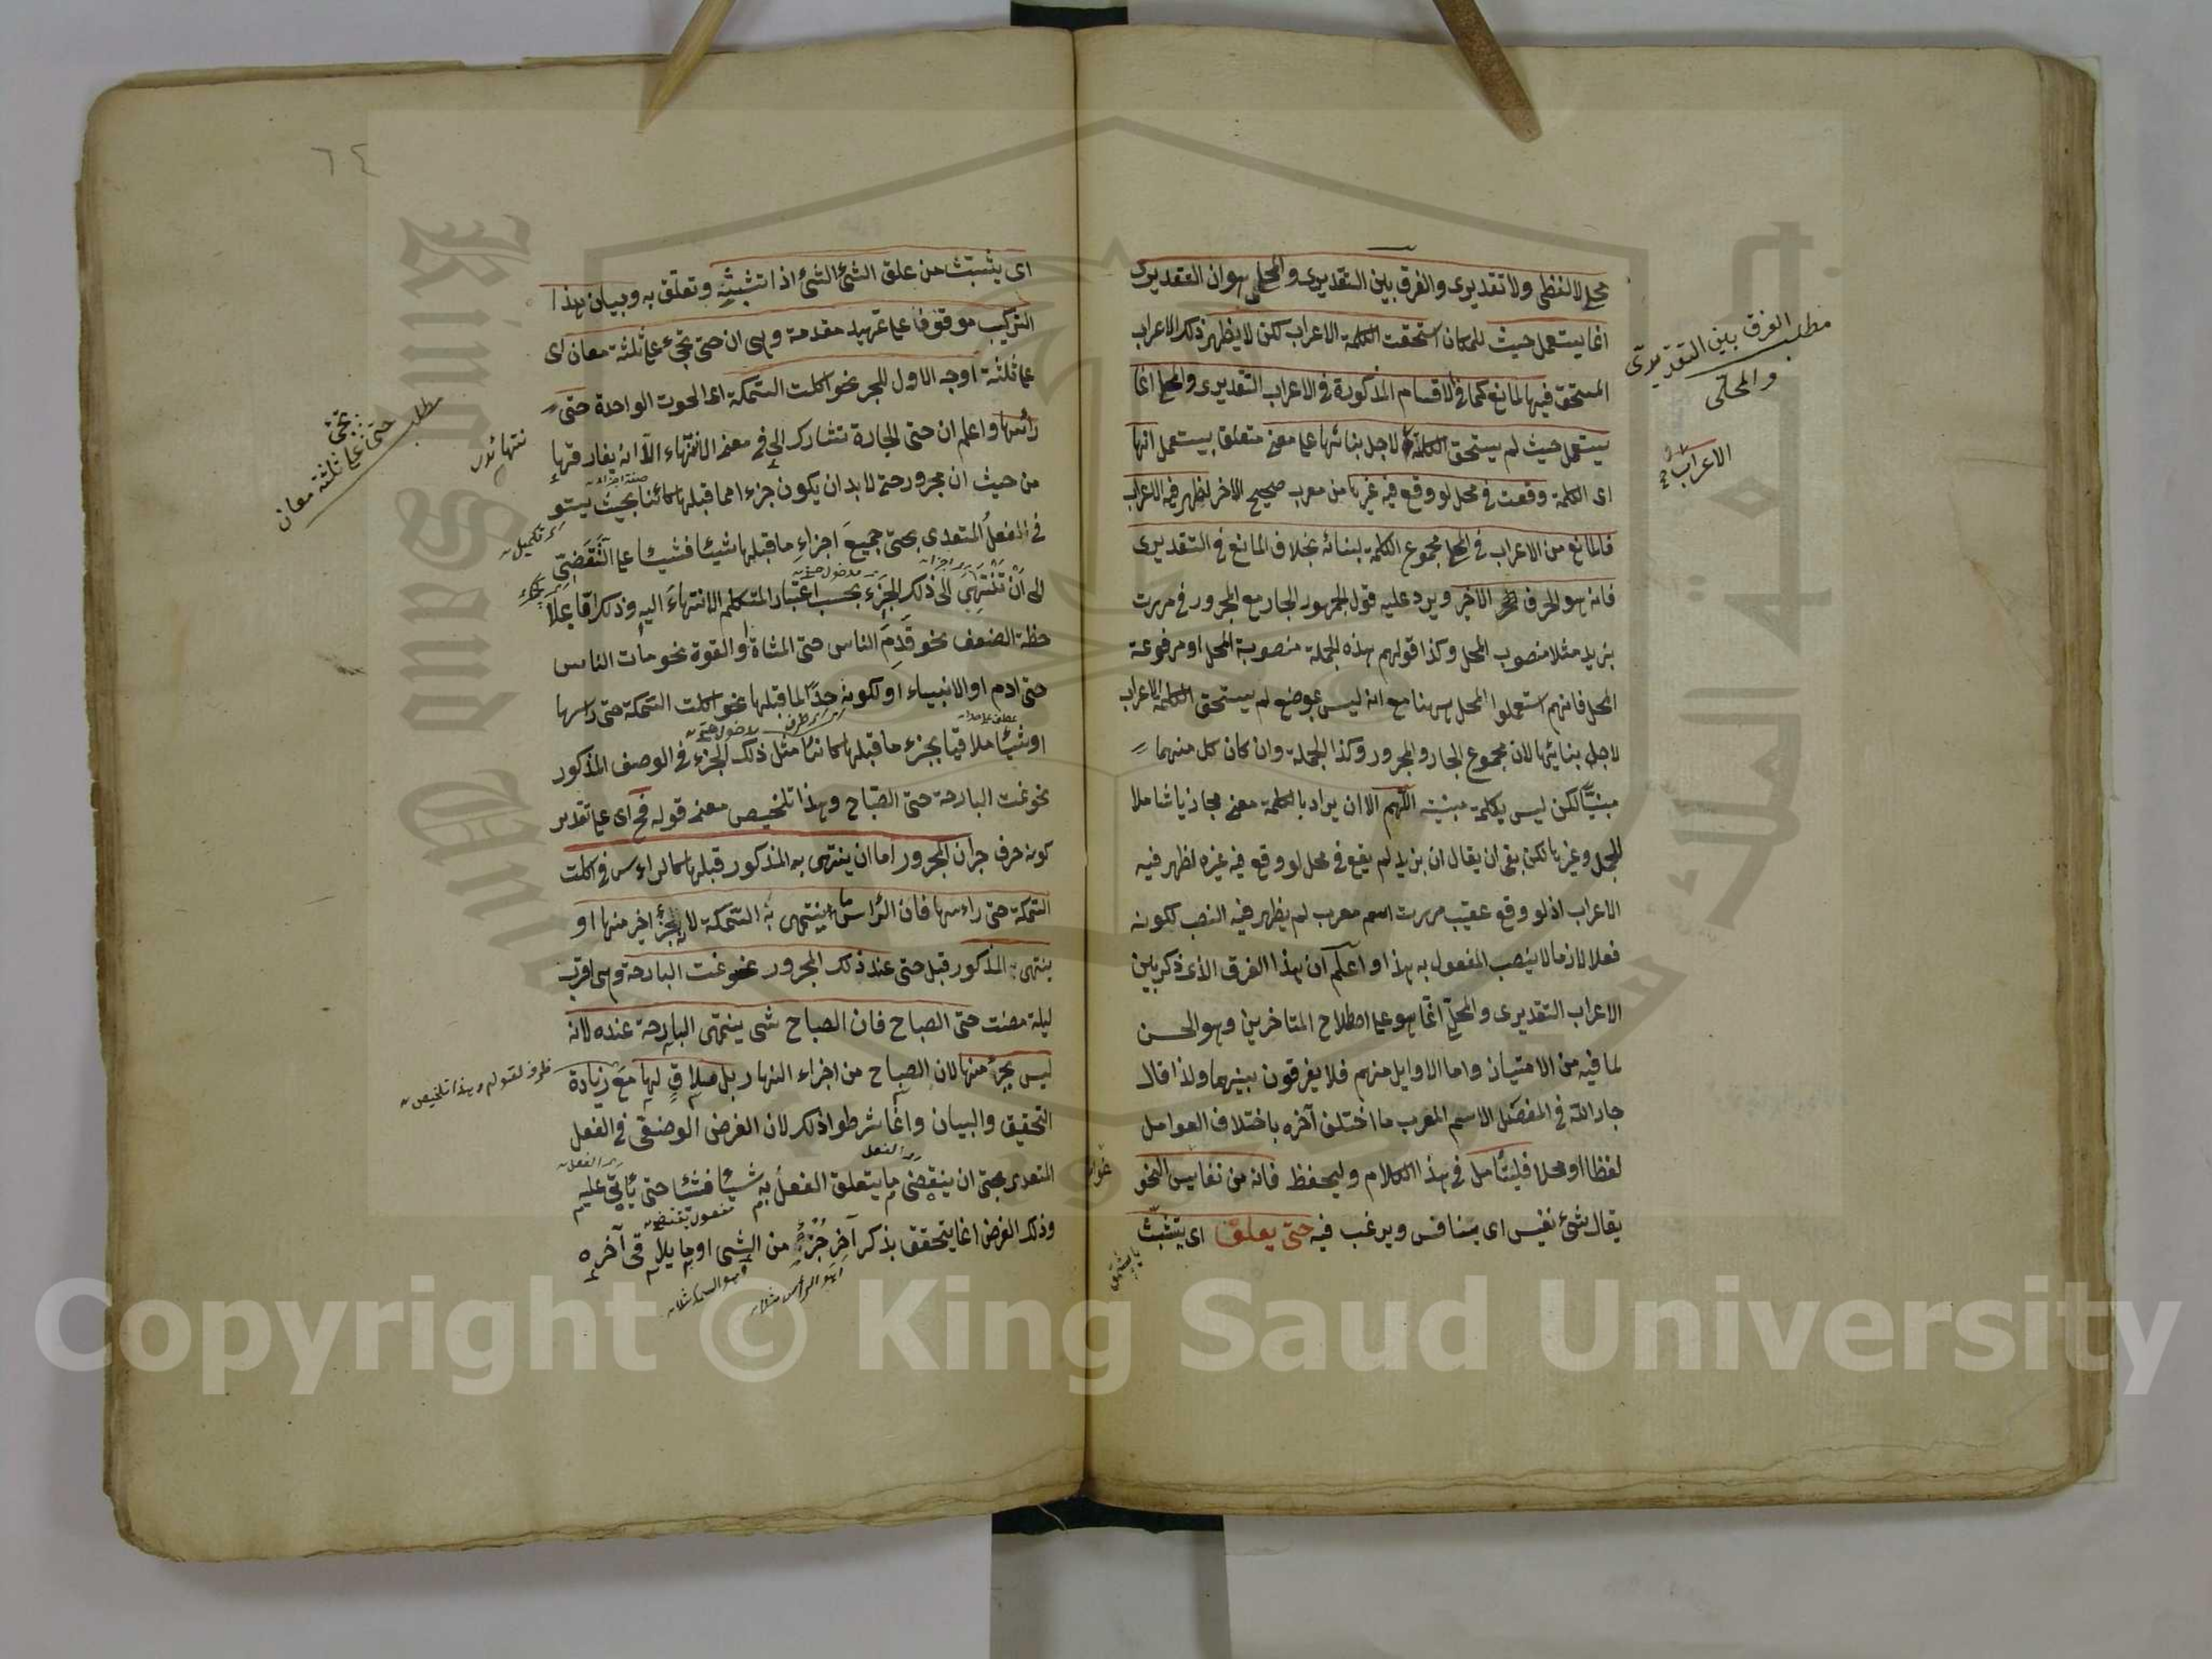 محلي لا لفظي ولا تقديري والفرق بين التقديري والمحلي هو ان التقديري
انما يستعمل حيث للمكان استحقت الكلمة الاعراب لكن لا يظهر ذلك الاعراب
المستحق فيها لمانع كما في الاقسام المذكورة في الاعراب التقديري والمحلي انما
يستعمل حيث لم يستحق الكلمة لاجل بنائها على معنى متعلق بيستعمل انها
اى الكلمة وقعت في محل لو وقع فيه غيرها من معرب صحيح الاخر لظهر فيه الاعراب
فالمانع من الاعراب في المحلي مجموع الكلمة لبنائه بخلاف المانع في التقديرى
فانه هو الحرف الاخير ويرد عليه قول الجمهور الجار مع المجرور في مررت
بزيد مثلا منصوب المحل وكذا قولهم هذه الجملة منصوبة المحل او مرفوعة
المحل فانهم استعملوا المحل ههنا مع انه ليس بموضع لم يستحق الكلمة الاعراب
لاجل بنائها لان مجموع الجار والمجرور وكذا الجملة وان كان كل منهما
مبنيا لكن ليس بكلمة مبنية اللهم الا ان يراد بالكلمة معنى مجازيا شاملا
للجمل وغيرها لكن بقى ان يقال ان بزيد لم يقع في محل لو وقع فيه غيره لظهر فيه
الاعراب اذ لو وقع عقيب مررت اسم معرب لم يظهر فيه النصب لكونه
فعلا لازما لا ينصب المفعول به هذا واعلم ان هذا الفرق الذى ذكر بين
الاعراب التقديرى والمحلي انما هو على اصطلاح المتاخرين وهو الحسن
لما فيه من الامتياز واما الاوايل منهم فلا يفرقون بينهما ولذا قال
جار الله في المفصل الاسم المعرب ما اختلف آخره باختلاف العوامل
لفظا او محلا فليتأمل في هذا الكلام وليحفظ فانه من نفايس النحو
يقال شئ نفيس اى يتنافس ويرغب فيه حتى يعلق اى يتشبث
مطلب الفرق بين التقديرى
والمحلى
الاعراب
اى يتشبث من علق الشئ الشئ اذا تشبثه وتعلق به وبيان هذا
التركيب موقوفا على تمهيد مقدمة وهى ان حتى تجئ على ثلثة معان اى
على ثلثة اوجه الاول للجر نحو اكلت السمكة اى الحوت الواحدة حتى
رأسها واعلم ان حتى الجارة تشارك الى في معنى الانتهاء الا انه يفارقها
من حيث ان مجرور حتى لا بد ان يكون جزءا مما قبلها كائنا بحيث يستو
في الفعل المتعدى بحتى جميع اجزاء ما قبلها شيئا فشيئا على التقضى
الى ان تنتهى الى ذلك الجزء بحسب اعتبار المتكلم الانتهاء اليه وذلك اما بملا
حظة الضعف نحو قدم الناس حتى المشاة او القوة نحو مات الناس
حتى ادم او الانبياء او لكونه حدا لما قبلها نحو اكلت السمكة حتى راسها
او شيئا ملاقيا بجزء ما قبلها كائنا مثل ذلك الجزء في الوصف المذكور
نحو نمت البارحة حتى الصباح وهذا تلخيص معنى قوله فح اى على تقدير
كونه حرف جر ان المجرور اما ان ينتهى به المذكور قبلها كالراءس في اكلت
السمكة حتى راءسها فان الرأس ما ينتهى به السمكة لا بجزء اخر منها او
ينتهى المذكور قبل حتى عند ذلك المجرور نحو نمت البارحة وهى اقرب
ليلة مضت حتى الصباح فان الصباح شى ينتهى البارحة عنده لانه
ليس بجزء منها لان الصباح من اجزاء النهار بل ملاق لها مع زيادة
التحقيق والبيان وانما شرطوا ذلك لان الغرض الوضعى في الفعل
المتعدى بحتى ان ينقضى ما يتعلق الفعل به شيئا فشيئا حتى يأتى عليه
وذلك الغرض انما يتحقق بذكر آخر جزء من الشى او ما يلاقى آخره
مطلب
حتى تجئ
على ثلثة معان
ظرف لقوله وهذا تلخيص
٦٤
Copyright © King Saud University